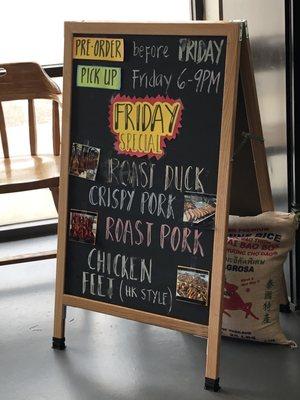 PRE-ORDER before FRIDAY
PICK UP Friday 6-9PM
FRIDAY
SPECIAL
ROAST DUCK
CRISPY PORK
ROAST PORK
CHICKEN
FEET (HK STYLE)
RICE
BAO BO
GROSA